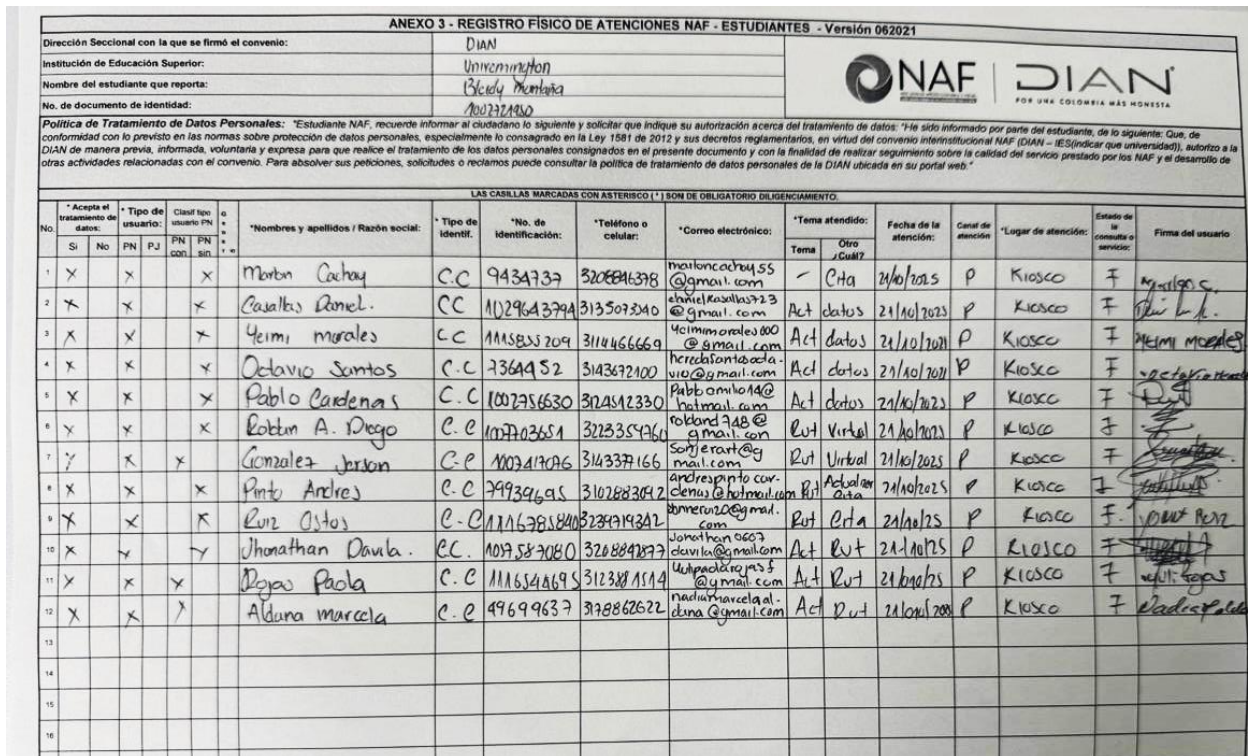 ANEXO 3 - REGISTRO FÍSICO DE ATENCIONES NAF - ESTUDIANTES - Versión 062021
Dirección Seccional con la que se firmó el convenio: DIAN
Institución de Educación Superior: Uniremington
Nombre del estudiante que reporta: Bleidy Montaña
No. de documento de identidad: 1002721980
NAF DIAN
POR UNA COLOMBIA MÁS HONESTA
Política de Tratamiento de Datos Personales: "Estudiante NAF, recuerde informar al ciudadano lo siguiente y solicitar que indique su autorización acerca del tratamiento de datos: "He sido informado por parte del estudiante, de lo siguiente: Que, de
conformidad con lo previsto en las normas sobre protección de datos personales, especialmente lo consagrado en la Ley 1581 de 2012 y sus decretos reglamentarios, en virtud del convenio interinstitucional NAF (DIAN – IES(indicar que universidad)), autorizo a la
DIAN de manera previa, informada, voluntaria y expresa para que realice el tratamiento de los datos personales consignados en el presente documento y con la finalidad de realizar seguimiento sobre la calidad del servicio prestado por los NAF y el desarrollo de
otras actividades relacionadas con el convenio. Para absolver sus peticiones, solicitudes o reclamos puede consultar la política de tratamiento de datos personales de la DIAN ubicada en su portal web."
LAS CASILLAS MARCADAS CON ASTERISCO (*) SON DE OBLIGATORIO DILIGENCIAMIENTO.
No. * Acepta el tratamiento de datos: Si No * Tipo de usuario: PN PJ Clasif tipo usuario PN PN con PN sin *Nombres y apellidos / Razón social: * Tipo de identif. *No. de identificación: *Teléfono o celular: *Correo electrónico: *Tema atendido: Tema Otro ¿Cuál? Fecha de la atención: Canal de atención *Lugar de atención: Estado de la consulta o servicio: Firma del usuario
1 X X X Marlon Cachay C.C 9434737 3208846378 marloncachay55@gmail.com - Cita 21/10/2025 P Kiosco F
2 X X X Casallas Daniel. CC 1029643794 3135073040 Act datos 21/10/2025 P Kiosco F
3 X X X Yeimi morales CC 1115855209 3114466669 Yeimimorales000@gmail.com Act datos 21/10/2021 P Kiosco F YEIMI MORALES
4 X X X Octavio Santos C.C 7364452 3143672100 heredasantosoctavio@gmail.com Act datos 21/10/2021 P Kiosco F
5 X X X Pablo Cardenas C.C 1002756630 3124512330 Pabloemilio14@hotmail.com Act datos 21/10/2025 P Kiosco F
6 X X X Robbin A. Diego C.C 1007703651 3223354760 Rut Virtual 21/10/2025 P Kiosco F
7 X X X Gonzalez Jerson C.C 1007417076 3143377166 Sonjerart@gmail.com Rut Virtual 21/10/2025 P Kiosco F
8 X X X Pinto Andres C.C 79939695 3102883092 andrespintocardenas@hotmail.com Rut Cita 21/10/2025 P Kiosco F
9 X X X Ruiz Ostos C.C 1116785840 3239719342 Rut Cita 21/10/25 P Kiosco F.
10 X X X Jhonathan Davila. CC. 1057587080 3208842877 Jonathan0607davila@gmail.com Act Rut 21/10/25 P KIOSCO F
11 X X X Rojas Paola C.C 1116544695 3123881514 Act Rut P KIOSCO F
12 X X X Aldana marcela C.C 49699637 3178862622 nadiamarcelaaldana@gmail.com Act Rut P Kiosco F
13
14
15
16